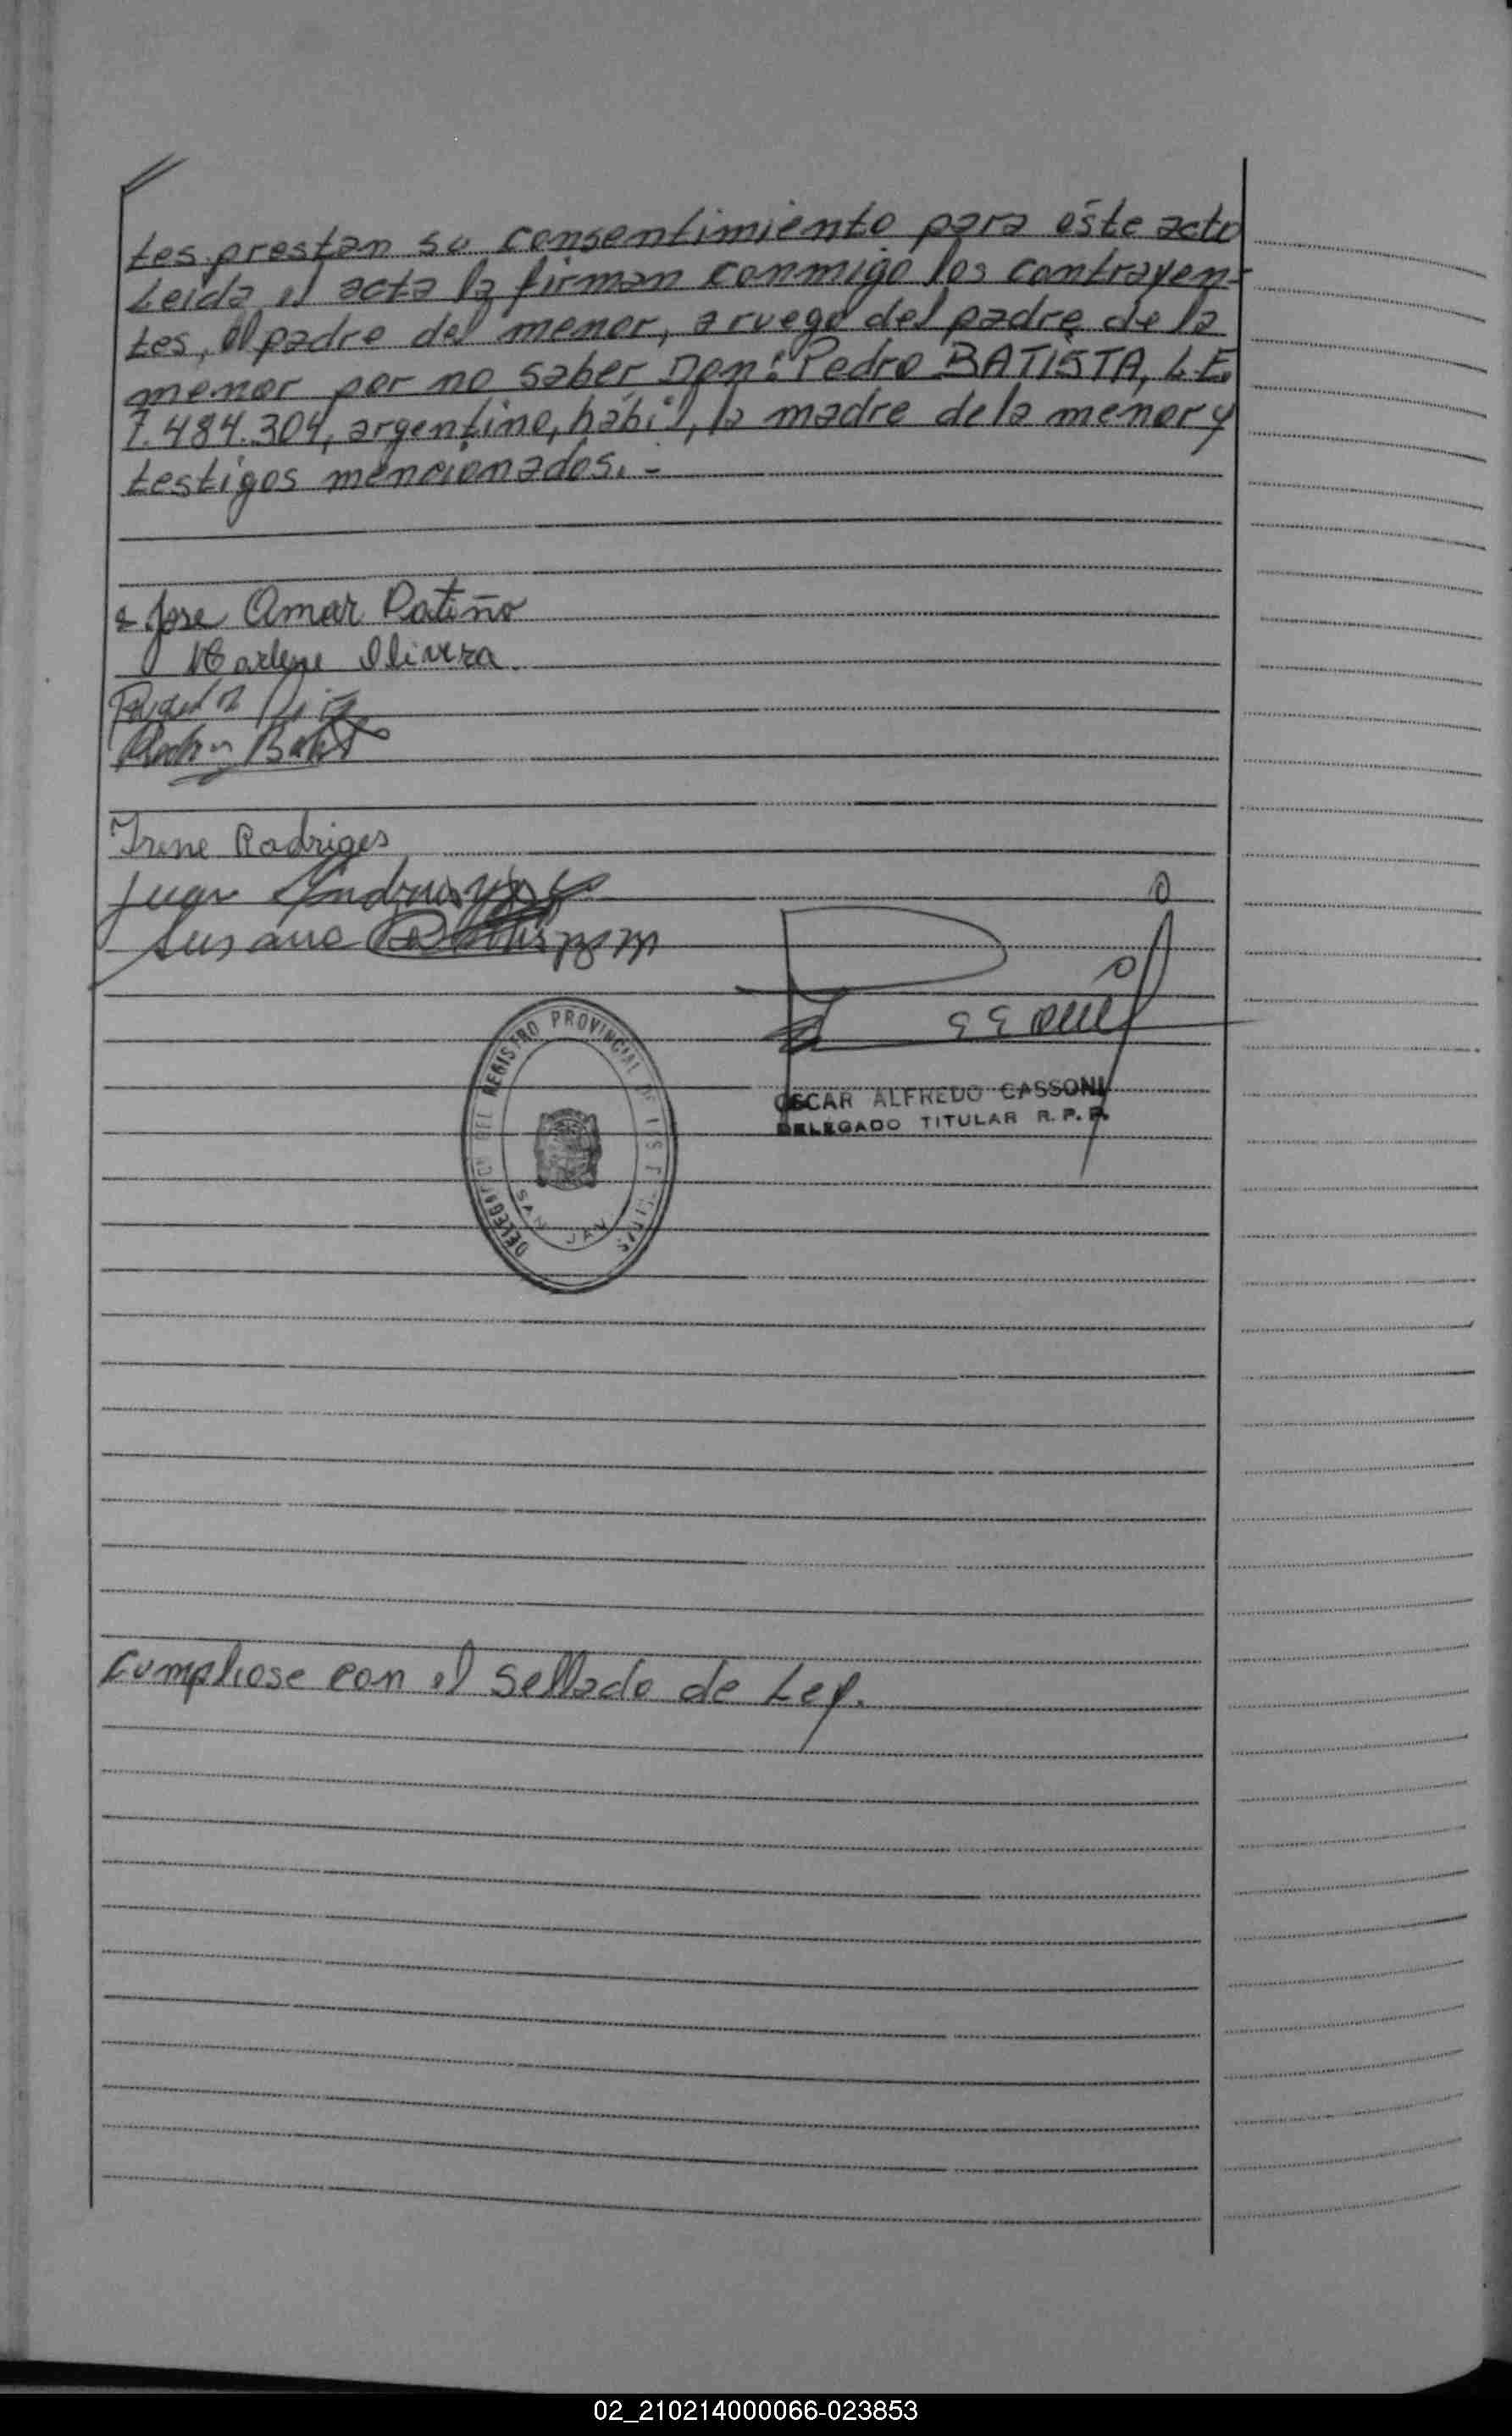 tes prestan su consentimiento para éste acto
Leida el acta la firman conmigo los contrayen-
tes, el padre del menor, a ruego del padre de la
menor por no saber Don: Pedro BATISTA, L.E.
7.484.304, argentino, hábil, la madre de la menor y
testigos mencionados. -
Jose Omar Patiño
Marlene Olivera.
Irene Rodriges
Juan
Susana
DELEGACION DEL REGISTRO PROVINCIAL DE LAS PERSONAS
SAN JAV
OSCAR ALFREDO CASSONI
DELEGADO TITULAR R. P. P.
Cumpliose con el sellado de Ley.
02_210214000066-023853